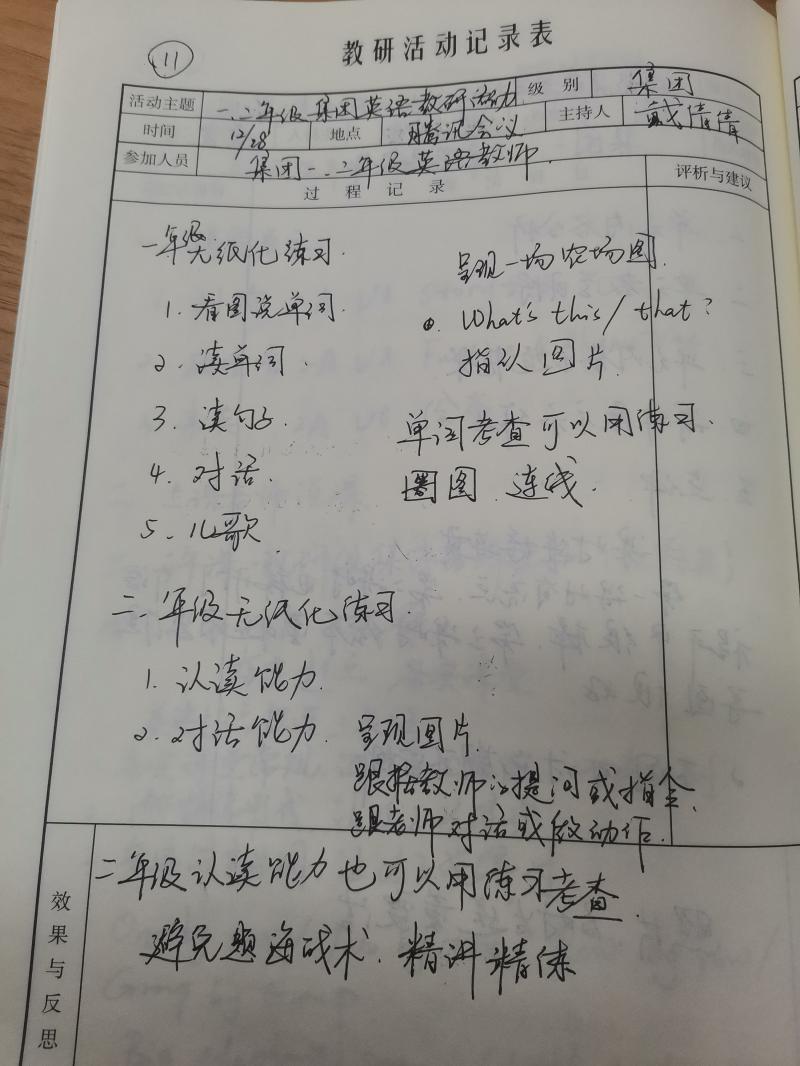 11
教研活动记录表
活动主题 一、二年级集团英语教研活动 级别 集团
时间 12/28 地点 腾讯会议 主持人 戴倩倩
参加人员 集团一、二年级英语教师.
过程记录 评析与建议
一年级无纸化练习.
1. 看图说单词.
2. 读单词.
3. 读句子.
4. 对话.
5. 儿歌
呈现一场农场图.
What's this / that?
指认图片.
单词考查可以用练习.
圈图、连线.
二.年级无纸化练习.
1. 认读能力.
2. 对话能力. 呈现图片.
跟据教师的提问或指令,
跟老师对话或做动作.
效果与反思
二年级认读能力也可以用练习考查.
避免题海战术. 精讲精练